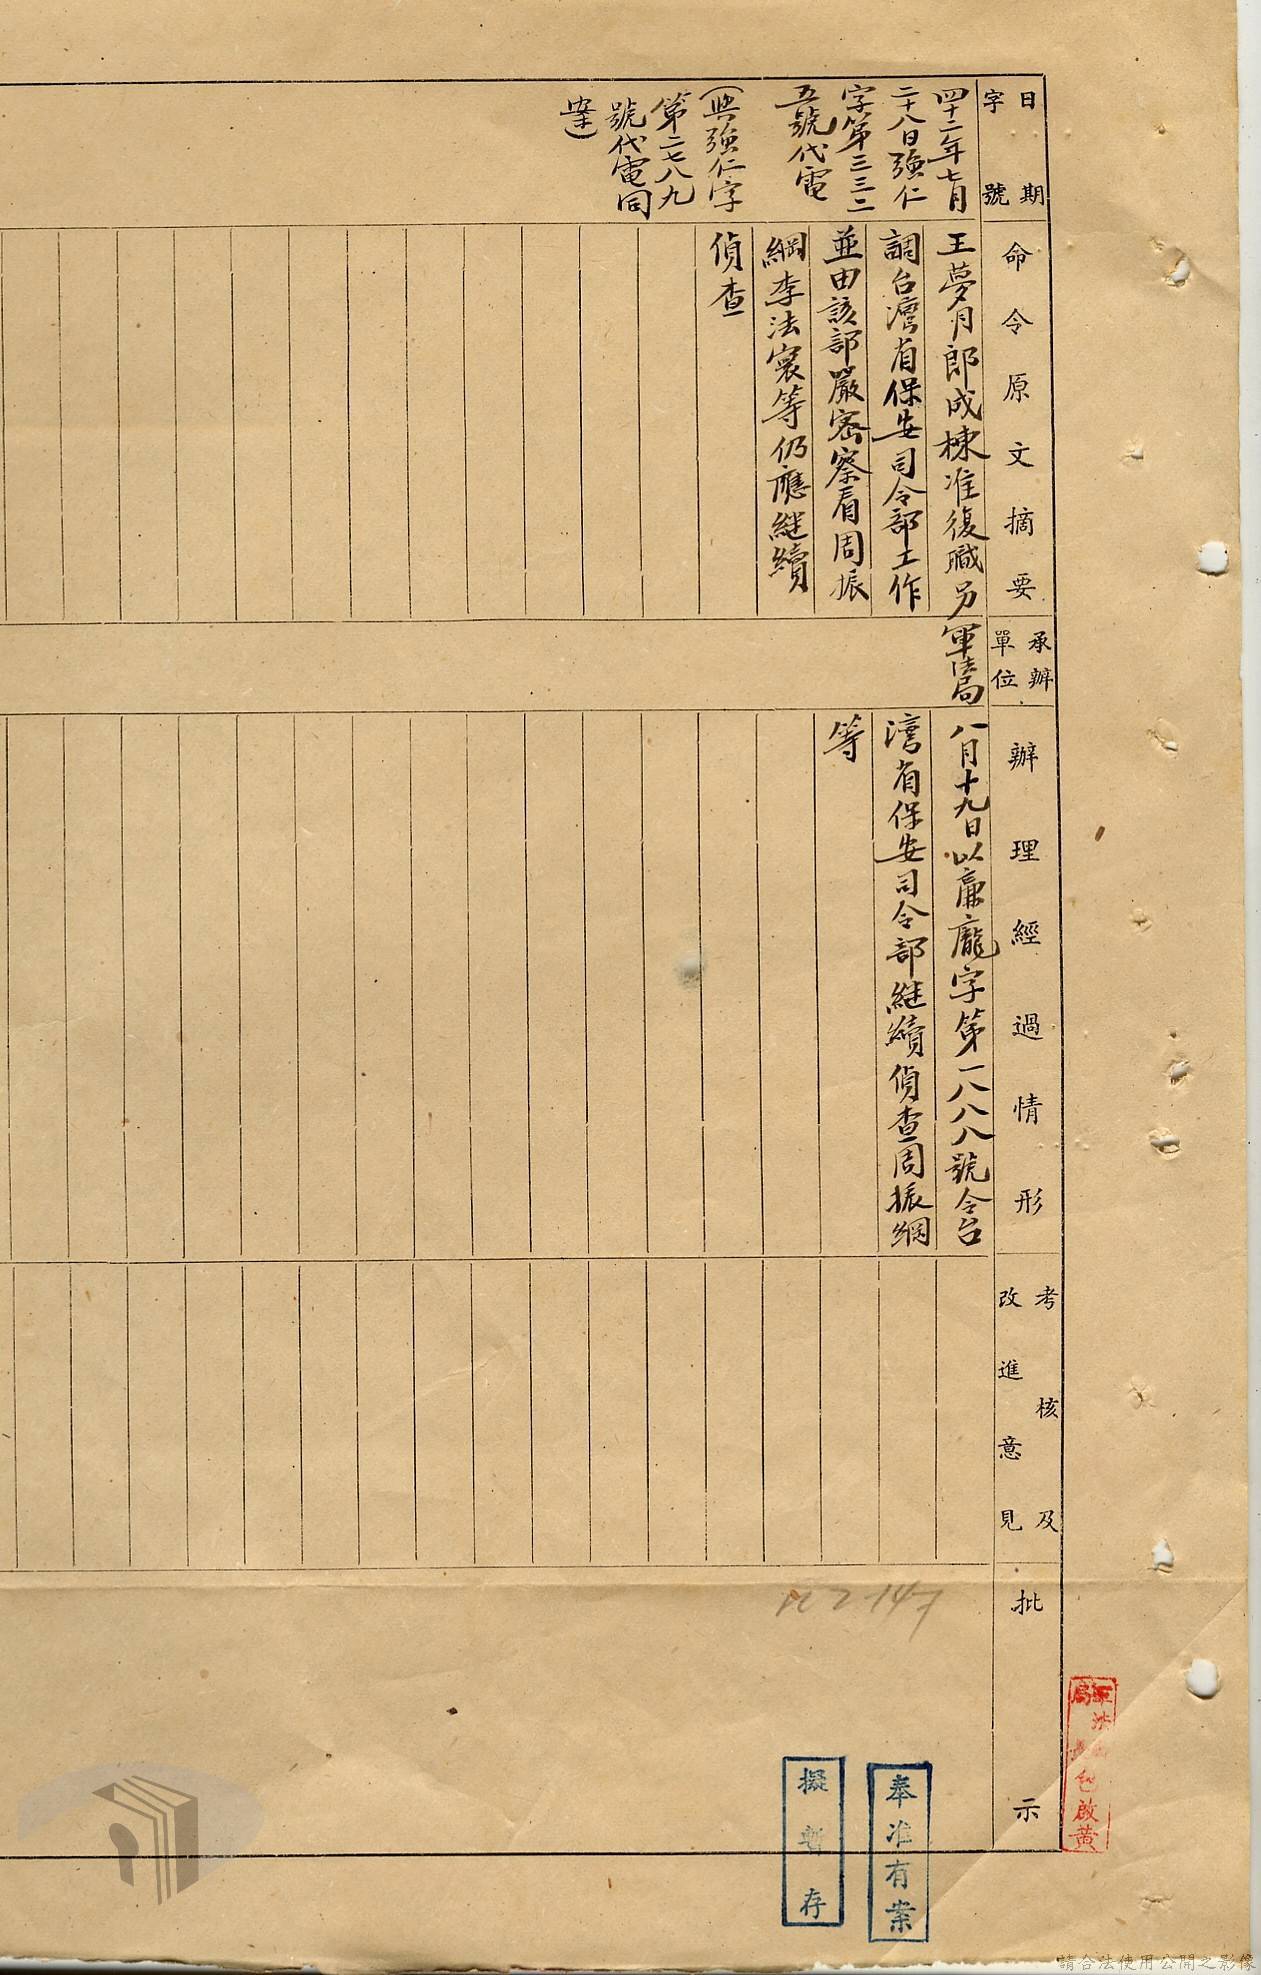 日期
字號
命令原文摘要
承辦
單位
辦理經過情形
考核及
改進意見
批示
四十二年七月
二十八日強仁
字第三三二
五號代電
(與強仁字
第二七八九
號代電同
案)
王夢月郎成棟准復職另
調台灣省保安司令部工作
並由該部嚴密察看周振
綱李法寰等仍應繼續
偵查
軍法局
八月十九日以廉龐字第一八八八號令台
灣省保安司令部繼續偵查周振綱
等
奉准有案
擬暫存
軍法
局
包啟黃
請合法使用公開之影像